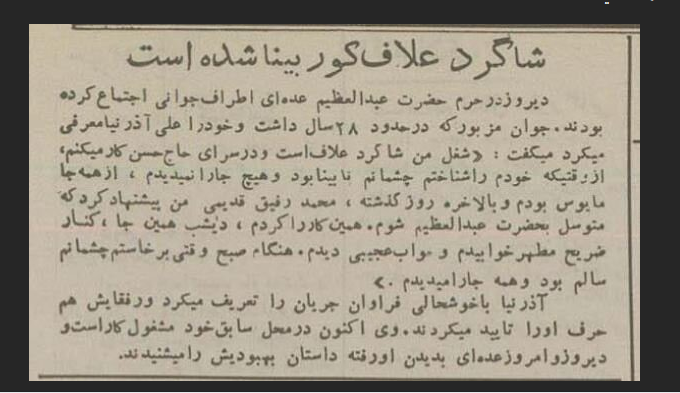 شاگرد علاف کور بینا شده است
دیروز در حرم حضرت عبدالعظیم عده‌ای اطراف جوانی اجتماع کرده
بودند. جوان مزبور که در حدود ۲۸ سال داشت و خود را علی آذرنیا معرفی
میکرد میگفت : «شغل من شاگرد علاف است و در سرای حاج حسن کار میکنم،
از وقتیکه خودم را شناختم چشمانم نابینا بود و هیچ جا را نمیدیدم ، از همه جا
مایوس بودم و بالاخره روز گذشته ، محمد رفیق قدیمی من پیشنهاد کرد که
متوسل بحضرت عبدالعظیم شوم. همین کار را کردم ، دیشب همین جا ، کنار
ضریح مطهر خوابیدم و خواب عجیبی دیدم. هنگام صبح وقتی برخاستم چشمانم
سالم بود و همه جا را میدیدم .»
آذرنیا با خوشحالی فراوان جریان را تعریف میکرد و رفقایش هم
حرف او را تایید میکردند. وی اکنون در محل سابق خود مشغول کار است و
دیروز و امروز عده‌ای بدیدن او رفته داستان بهبودیش را میشنیدند.